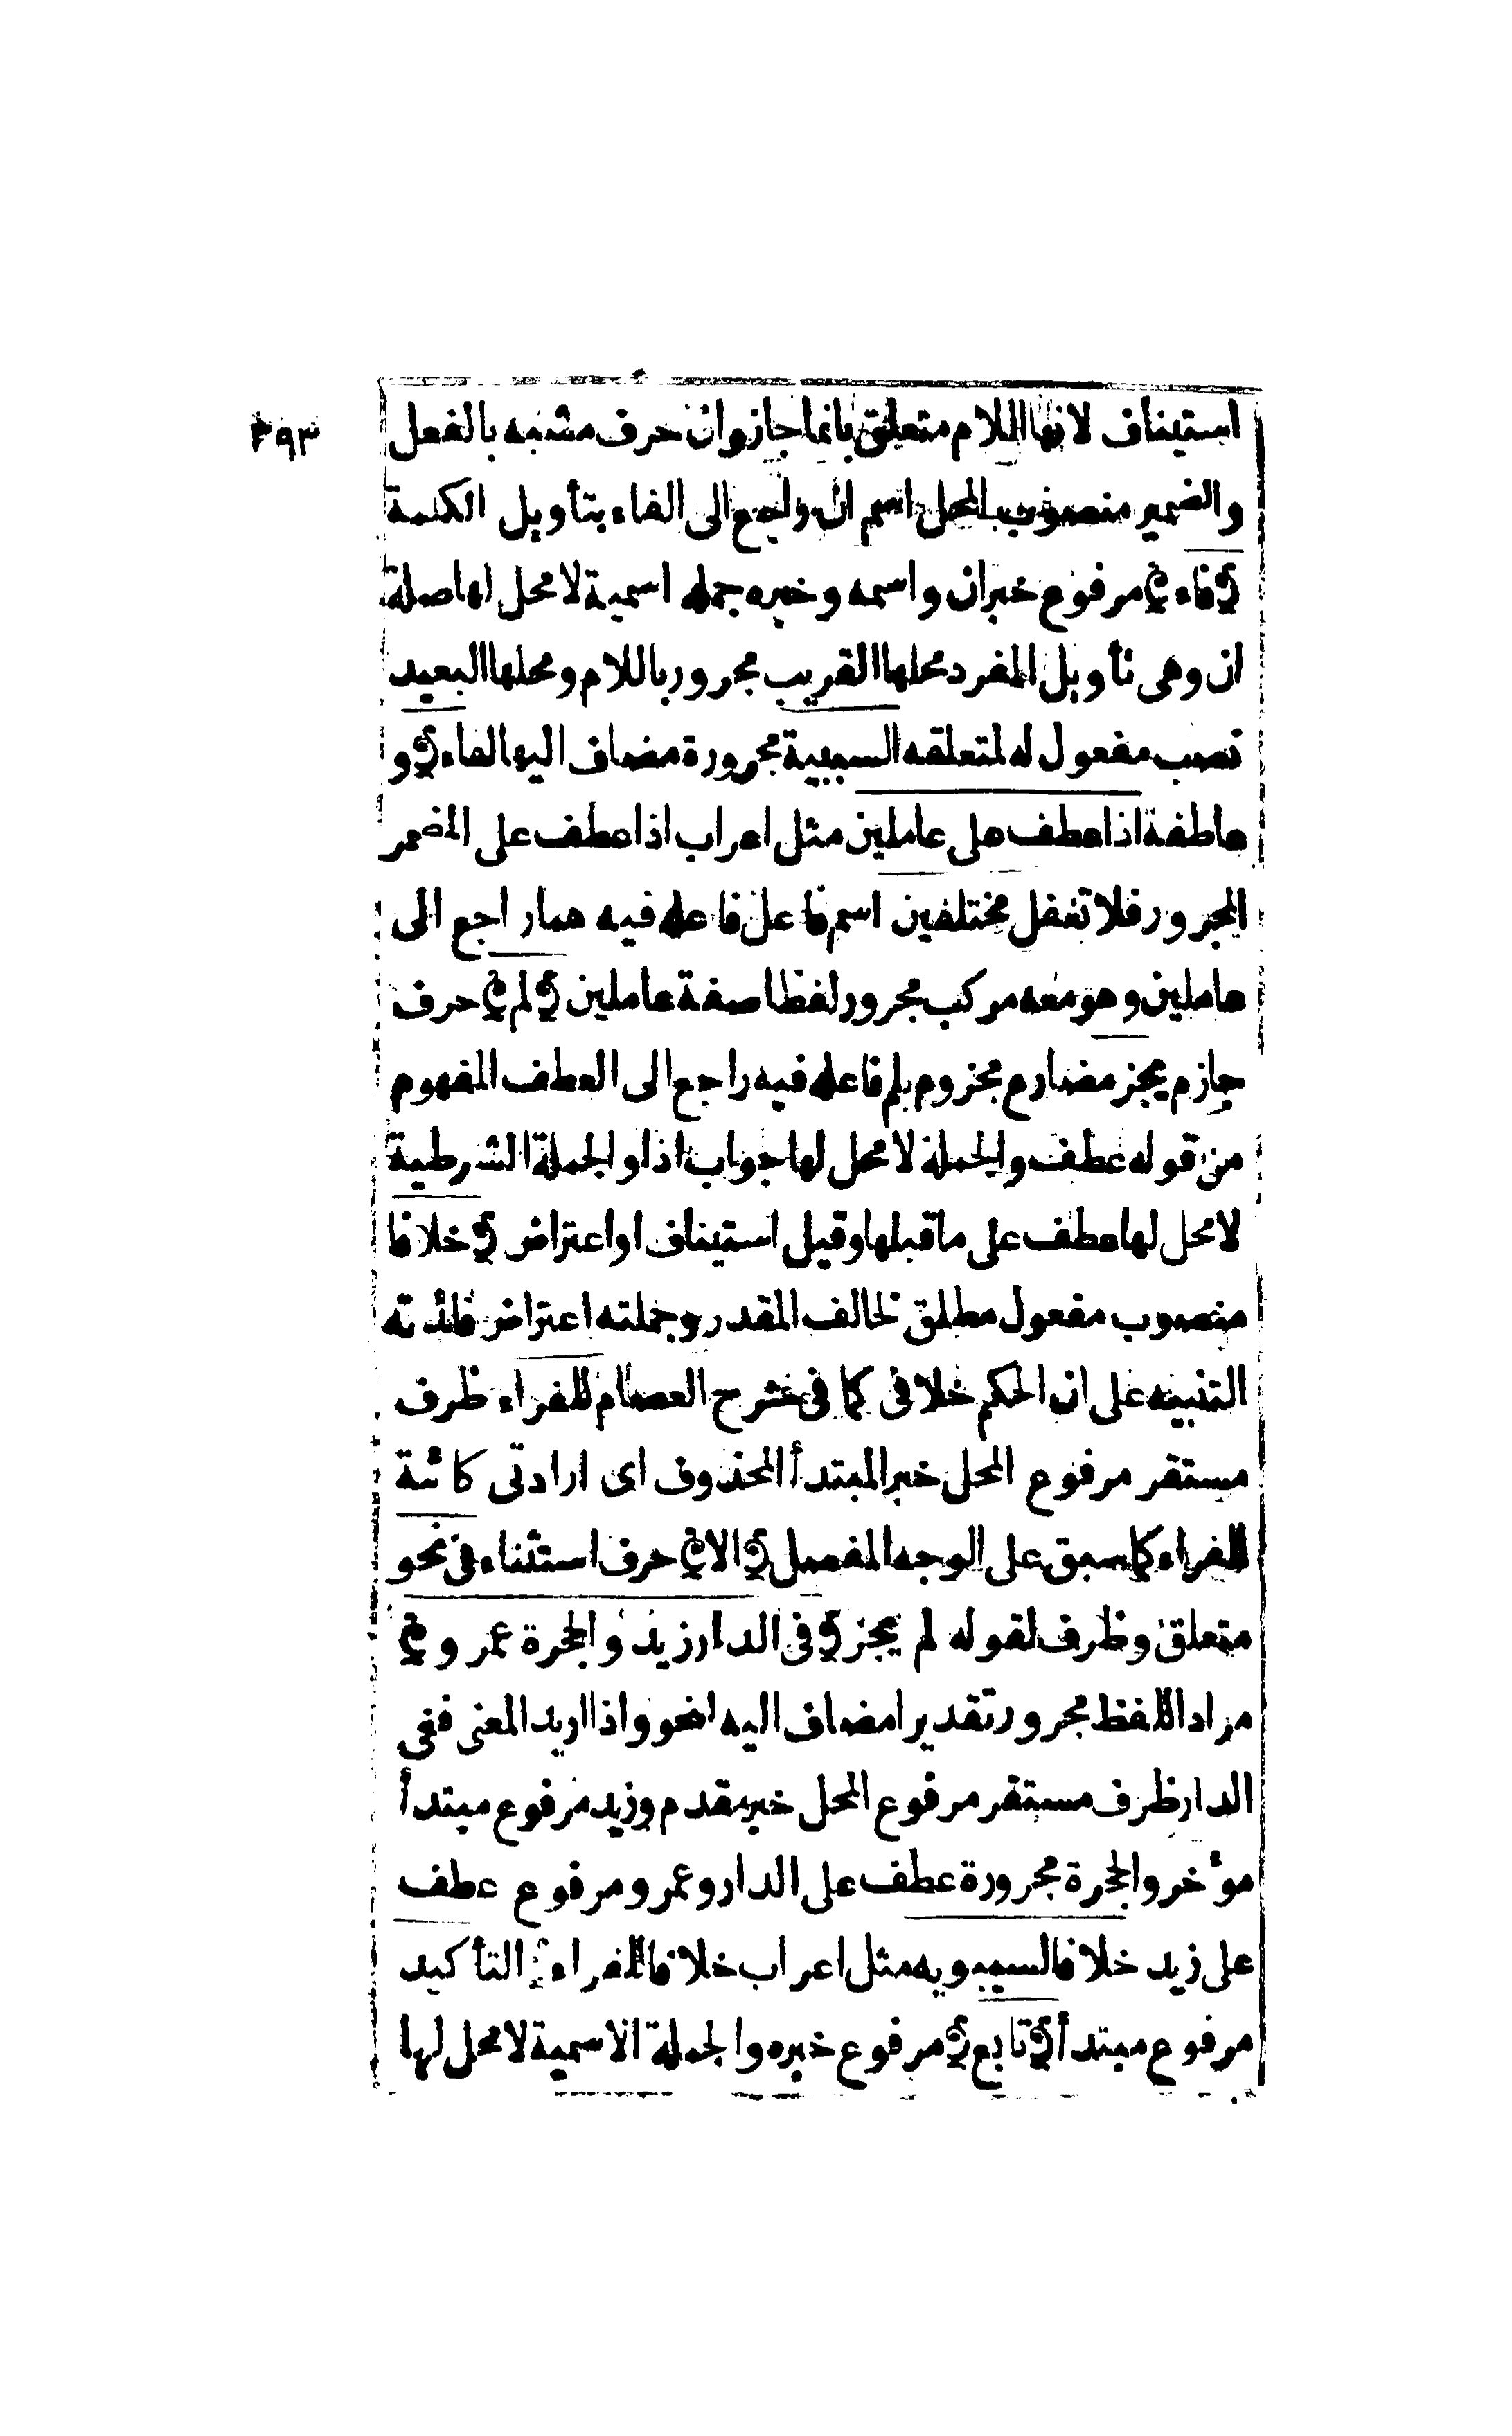 ٢٩٣
استيناف لانها اللام متعلق بانما جاز وان حرف مشبه بالفعل
والضمير منصوب المحل اسم ان راجع الى الفاء بتأويل الكلمة
﴿فاء﴾ مرفوع خبران واسمه وخبره جملة اسمية لا محل لها صلة
ان وهى تأويل المفرد محلها القريب مجرور باللام ومحلها البعيد
نصب مفعول له لمتعلقه السببية مجرورة مضاف اليها لفاء ﴿و
عاطفة اذا عطف على عاملين مثل اعراب اذا عطف على المضمر
المجرور فلا تغفل مختلفين اسم فاعل فاعله فيه هما راجع الى
عاملين وهو معه مركب مجرور لفظا صفة عاملين ﴿لم﴾ حرف
جازم يجز مضارع مجزوم بلم فاعله فيه راجع الى العطف المفهوم
من قوله عطف والجملة لا محل لها جواب اذا والجملة الشرطية
لا محل لها عطف على ما قبلها وقيل استيناف او اعتراض ﴿خلافا
منصوب مفعول مطلق لخالف المقدر وجملته اعتراض فائدته
التنبيه على ان الحكم خلافى كما فى شرح العصام للفراء ظرف
مستقر مرفوع المحل خبر المبتدأ المحذوف اى ارادتى كائنة
للفراء كما سبق على الوجه المفصل ﴿الا﴾ حرف استثناء فى نحو
متعلق وظرف لقوله لم يجز ﴿فى الدار زيد والحجرة عمرو﴾
مراد اللفظ مجرور تقديرا مضاف اليه لنحو واذا اريد المعنى ففى
الدار ظرف مستقر مرفوع المحل خبر مقدم وزيد مرفوع مبتدأ
مؤخر والحجرة مجرورة عطف على الدار وعمرو مرفوع عطف
على زيد خلافا لسيبويه مثل اعراب خلافا للفراء التأكيد
مرفوع مبتدأ ﴿تابع﴾ مرفوع خبره والجملة الاسمية لا محل لها